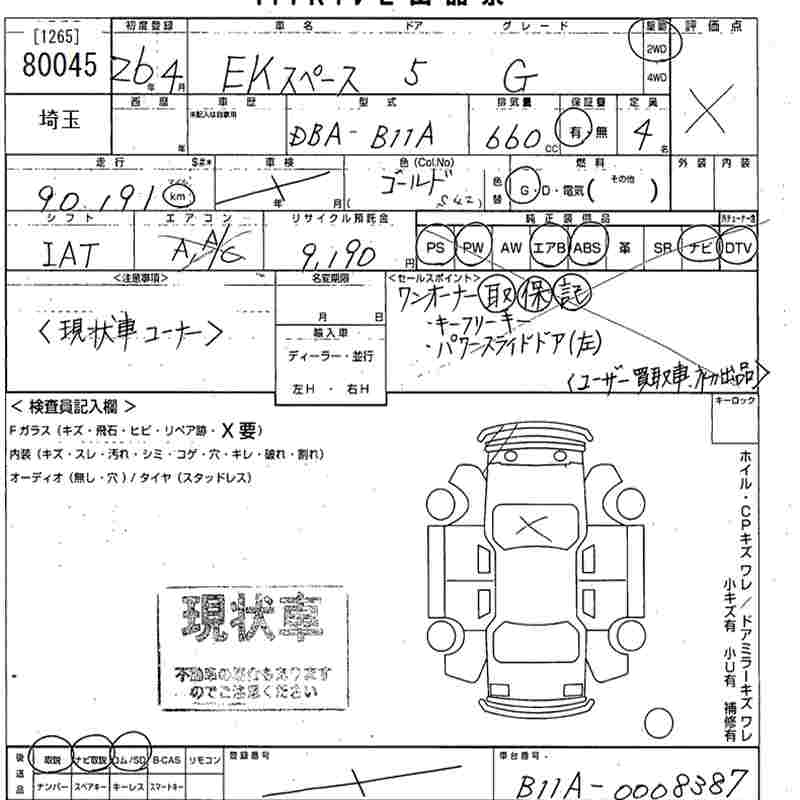 [1265]
80045
初度登録 車名 ドア グレード 駆動 評価点
26年 4月 EKスペース 5 G 2WD 4WD ×
埼玉
西暦 車歴 型式 排気量 保証書 定員
年 未記入は自家用 DBA-B11A 660cc 有・無 4名
走行 S#* 車検 色(Col.No) 燃料 外装 内装
90,191 マイル km 年 月 ゴールド ( S42 ) 色替 G・D・電気( その他 )
シフト エアコン リサイクル預託金 純正装備品
IAT A,A/C 9,190円 PS PW AW エアB ABS 革 SR ナビ DTV
<注意事項> 名変期限 <セールスポイント>
<現状車コーナー> 月 日 ワンオーナー 取 保 記
・キーフリーキー
輸入車 ・パワースライドドア(左)
ディーラー・並行
左H ・ 右H <ユーザー買取車.初出品>
< 検査員記入欄 > キーロック
Fガラス(キズ・飛石・ヒビ・リペア跡・X要)
内装(キズ・スレ・汚れ・シミ・コゲ・穴・キレ・破れ・割れ)
オーディオ(無し・穴)/タイヤ(スタッドレス)
ホイル・CPキズ ワレ / ドアミラーキズ ワレ
小キズ有 小U有 補修有
現状車
不動車の場合もあります
のでご注意ください
後送品 取説 ナビ取説 ロム/SD B-CAS リモコン 登録番号 車台番号
ナンバー スペアキー キーレス スマートキー B11A-0008387